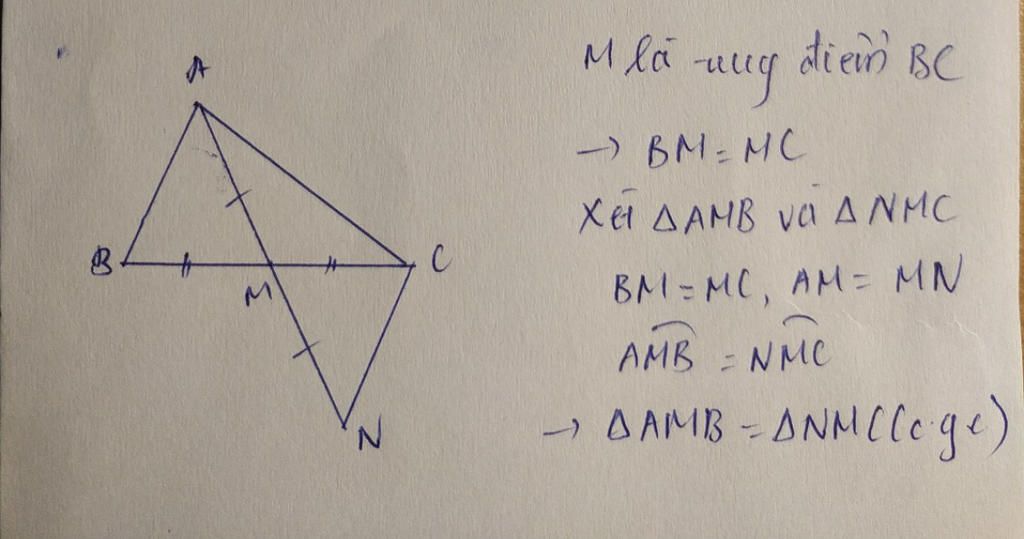 A
B
C
M
N
M là trung điểm BC
→ BM = MC
Xét ΔAMB và ΔNMC
BM = MC, AM = MN
AMB = NMC
→ ΔAMB = ΔNMC (c.g.c)